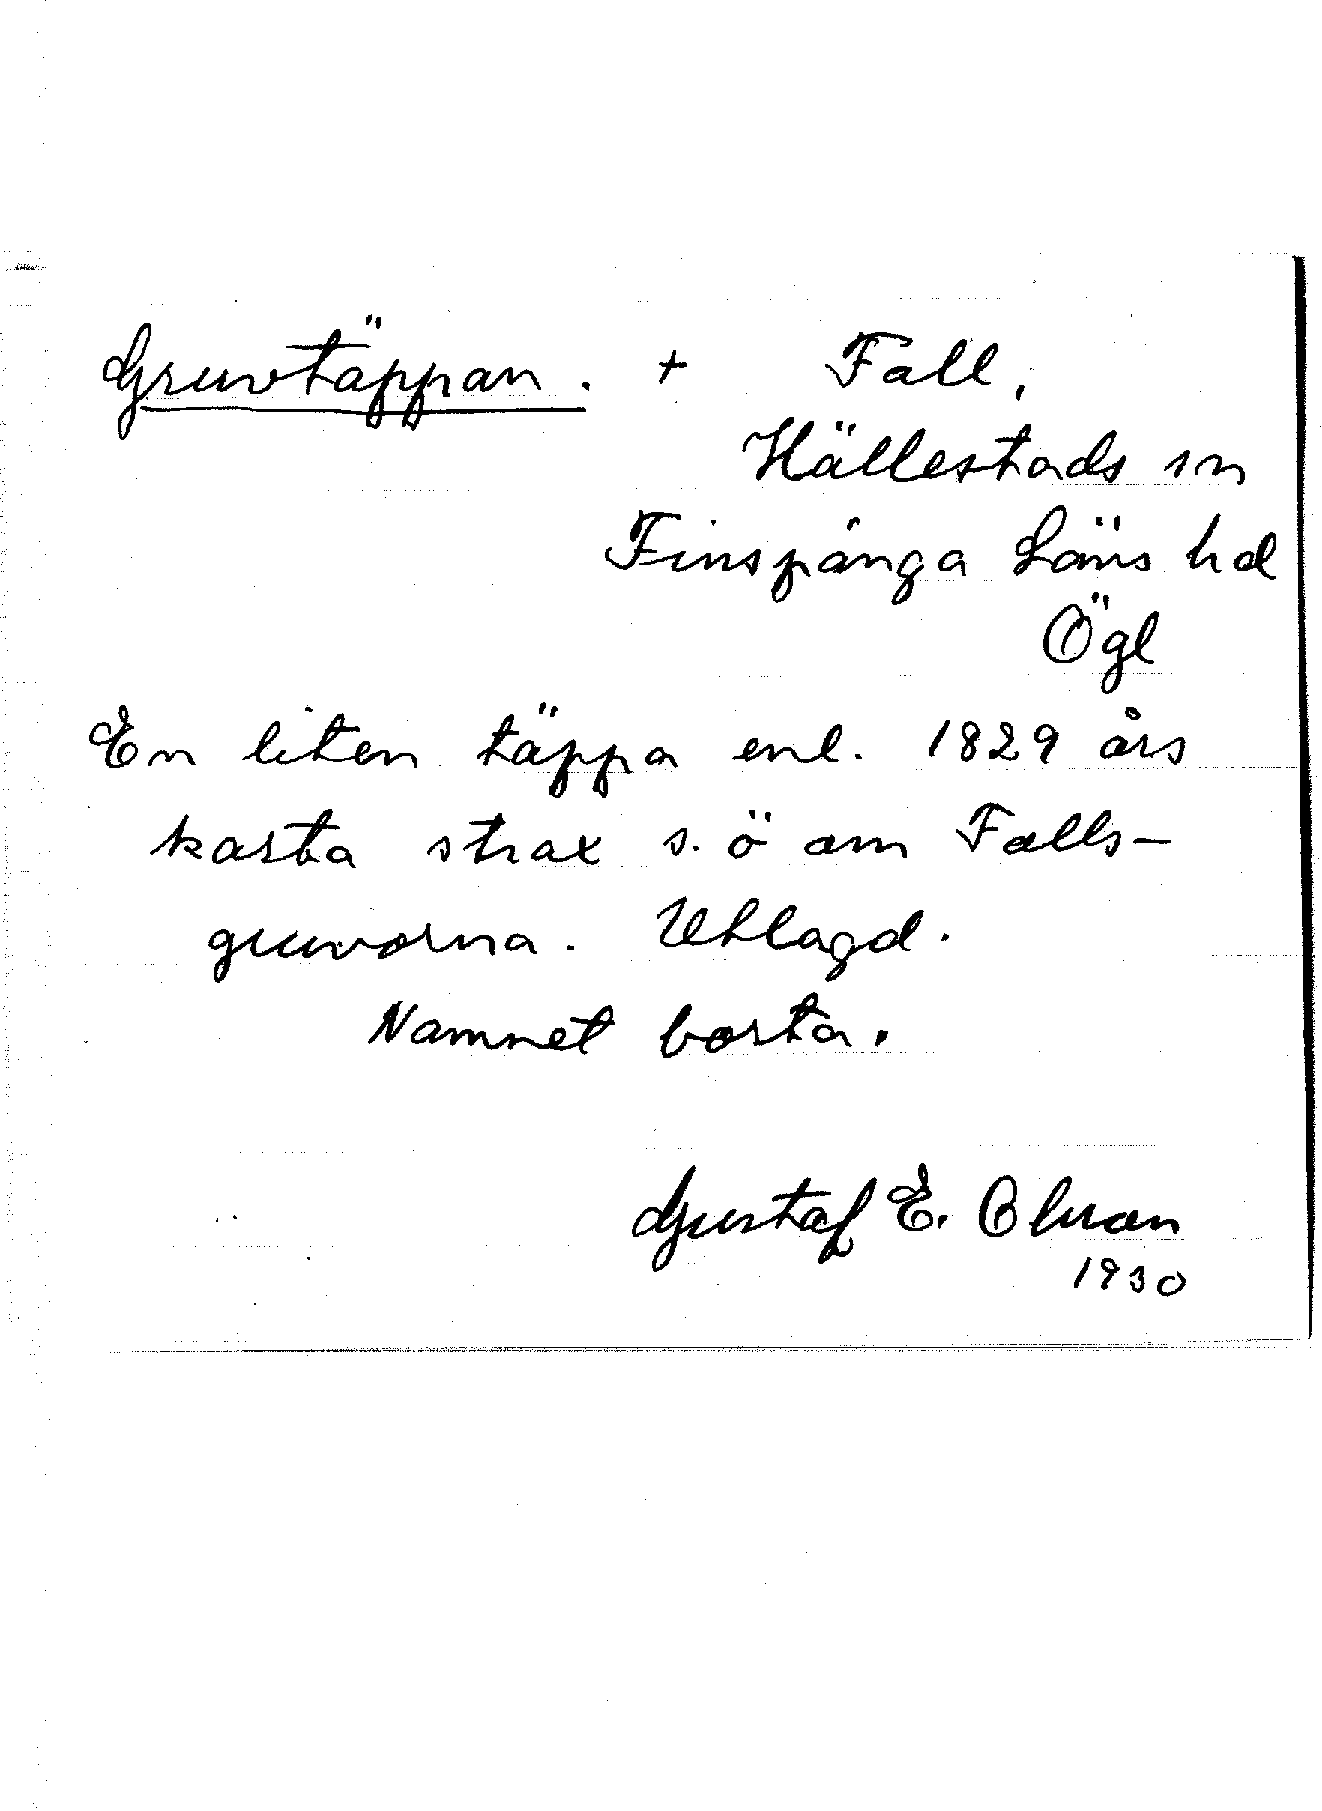 Gruvtäppan. + Fall,
Hällestads sn
Finspånga Läns hd
Ögl
En liten täppa enl. 1829 års
karta strax s. ö om Falls-
gruvorna. Utlagd.
Namnet borta.
Gustaf E.
1930